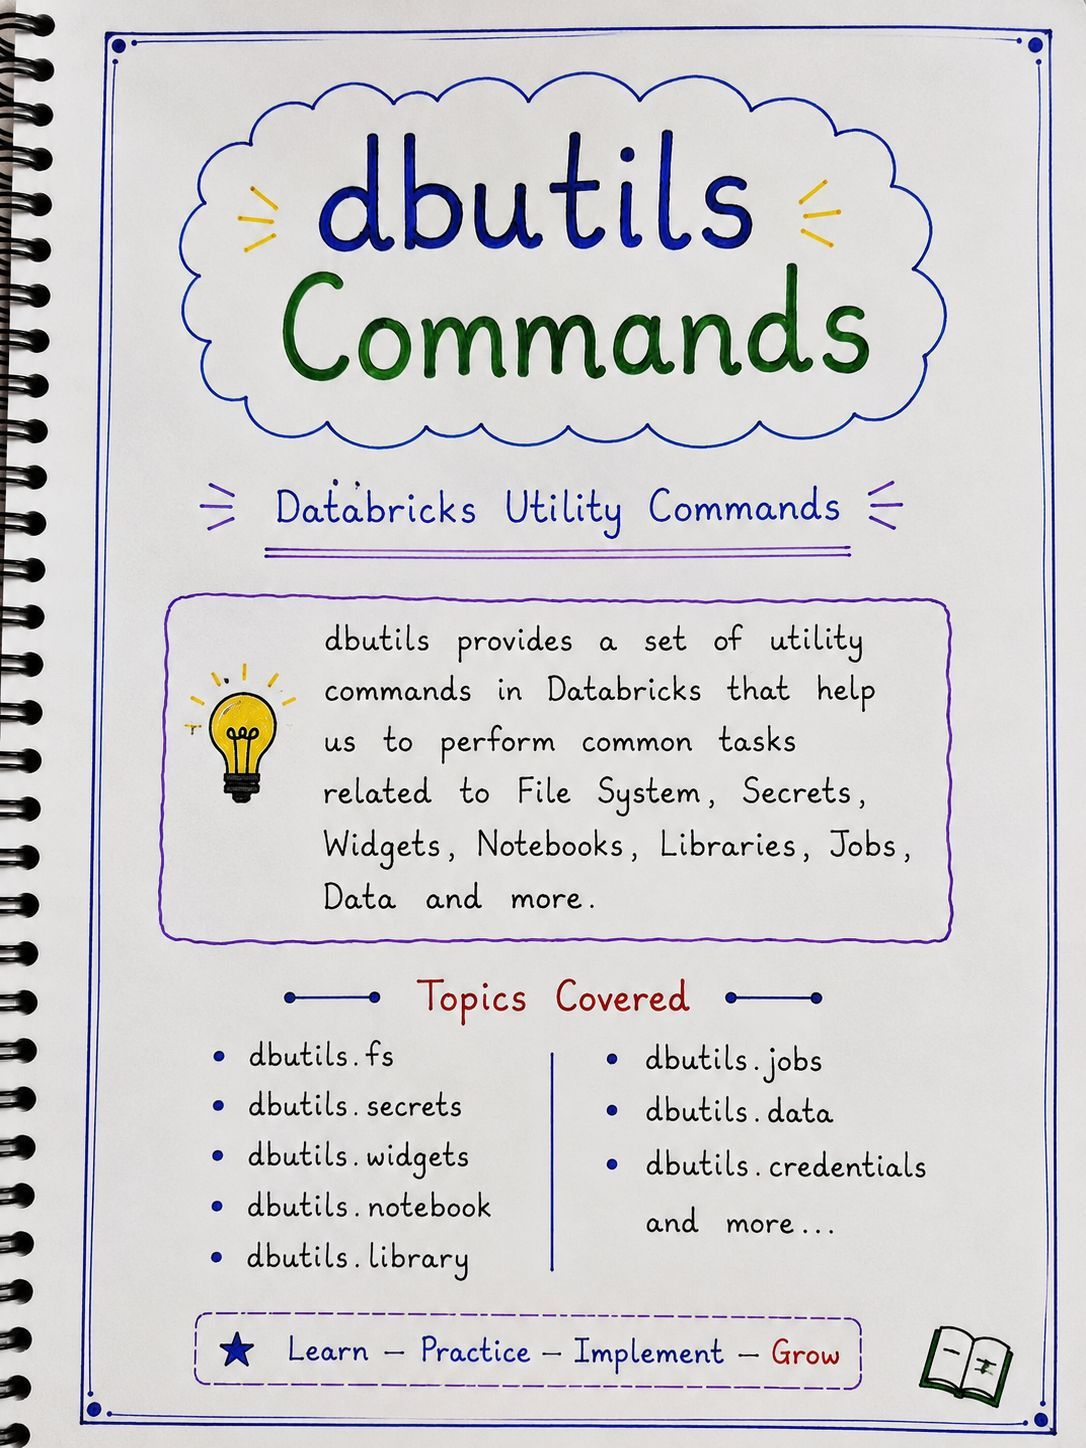 dbutils
Commands
Databricks Utility Commands
dbutils provides a set of utility
commands in Databricks that help
us to perform common tasks
related to File System, Secrets,
Widgets, Notebooks, Libraries, Jobs,
Data and more.
Topics Covered
• dbutils.fs
• dbutils.secrets
• dbutils.widgets
• dbutils.notebook
• dbutils.library
• dbutils.jobs
• dbutils.data
• dbutils.credentials
and more...
★ Learn – Practice – Implement – Grow